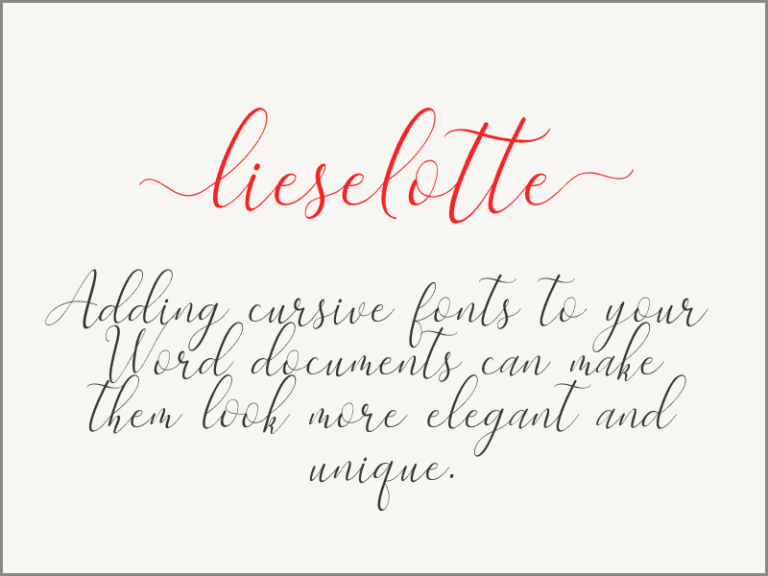 lieselotte
Adding cursive fonts to your
Word documents can make
them look more elegant and
unique.